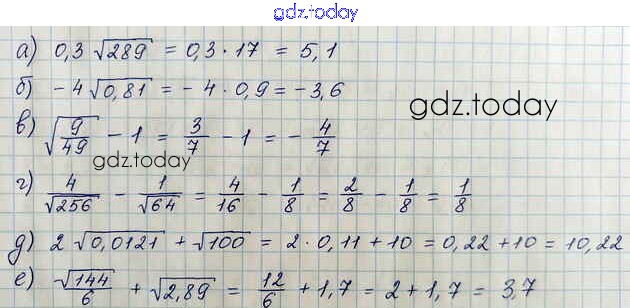 gdz.today
а) 0,3 √289 = 0,3 · 17 = 5,1
б) -4 √0,81 = -4 · 0,9 = -3,6
gdz.today
в) √(9/49) - 1 = 3/7 - 1 = - 4/7
gdz.today
г) 4/√256 - 1/√64 = 4/16 - 1/8 = 2/8 - 1/8 = 1/8
д) 2 √0,0121 + √100 = 2 · 0,11 + 10 = 0,22 + 10 = 10,22
е) √144/6 + √2,89 = 12/6 + 1,7 = 2 + 1,7 = 3,7